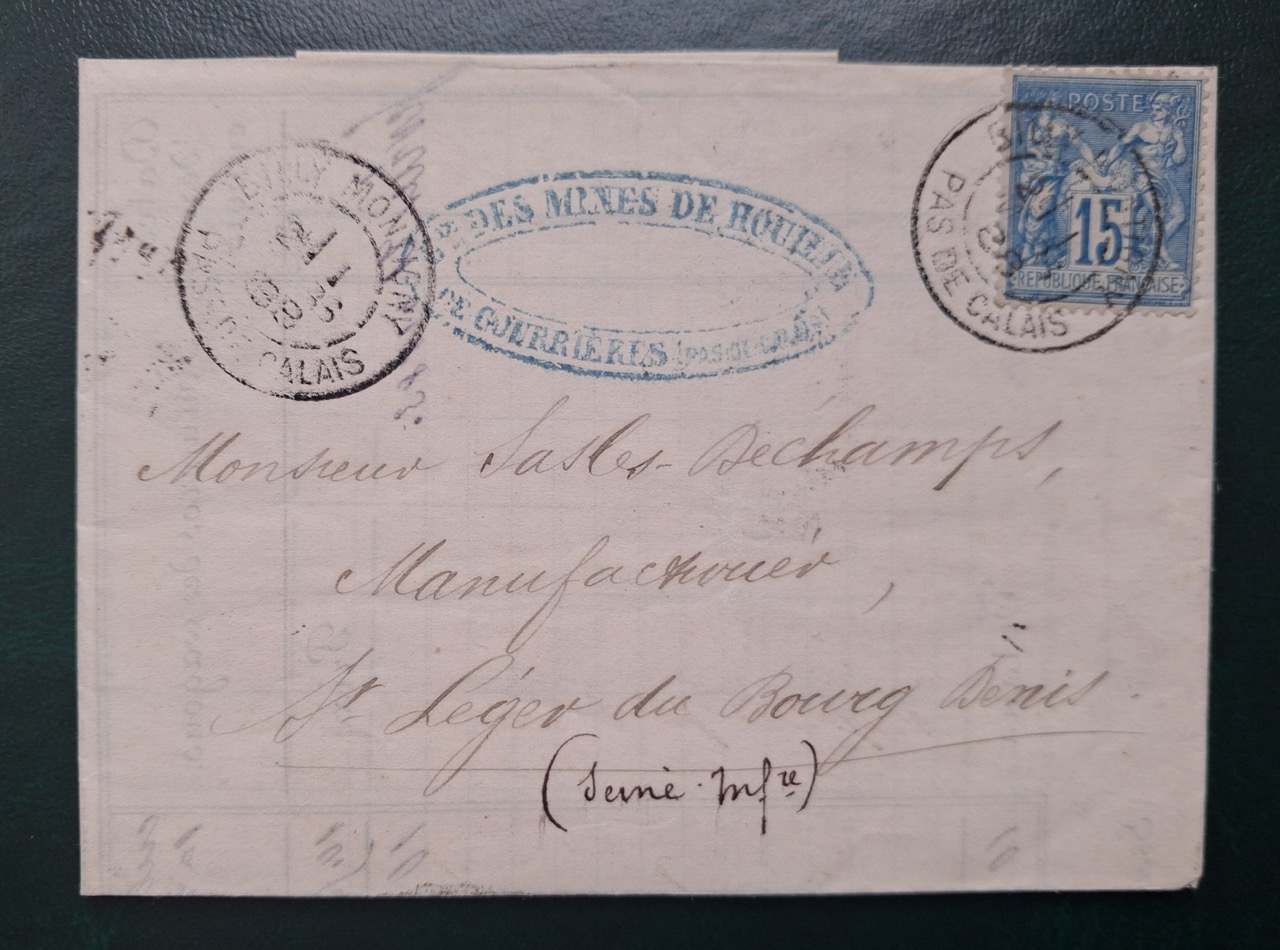 BILLY MONTIGNY
PAS DE CALAIS
DES MINES DE HOUILLE
DE COURRIÈRES (PAS-DE-CALAIS)
POSTE
15
RÉPUBLIQUE FRANÇAISE
PAS DE CALAIS
Monsieur
Déchamps,
Manufacturier,
St Léger du Bourg Denis.
(Seine Infre)